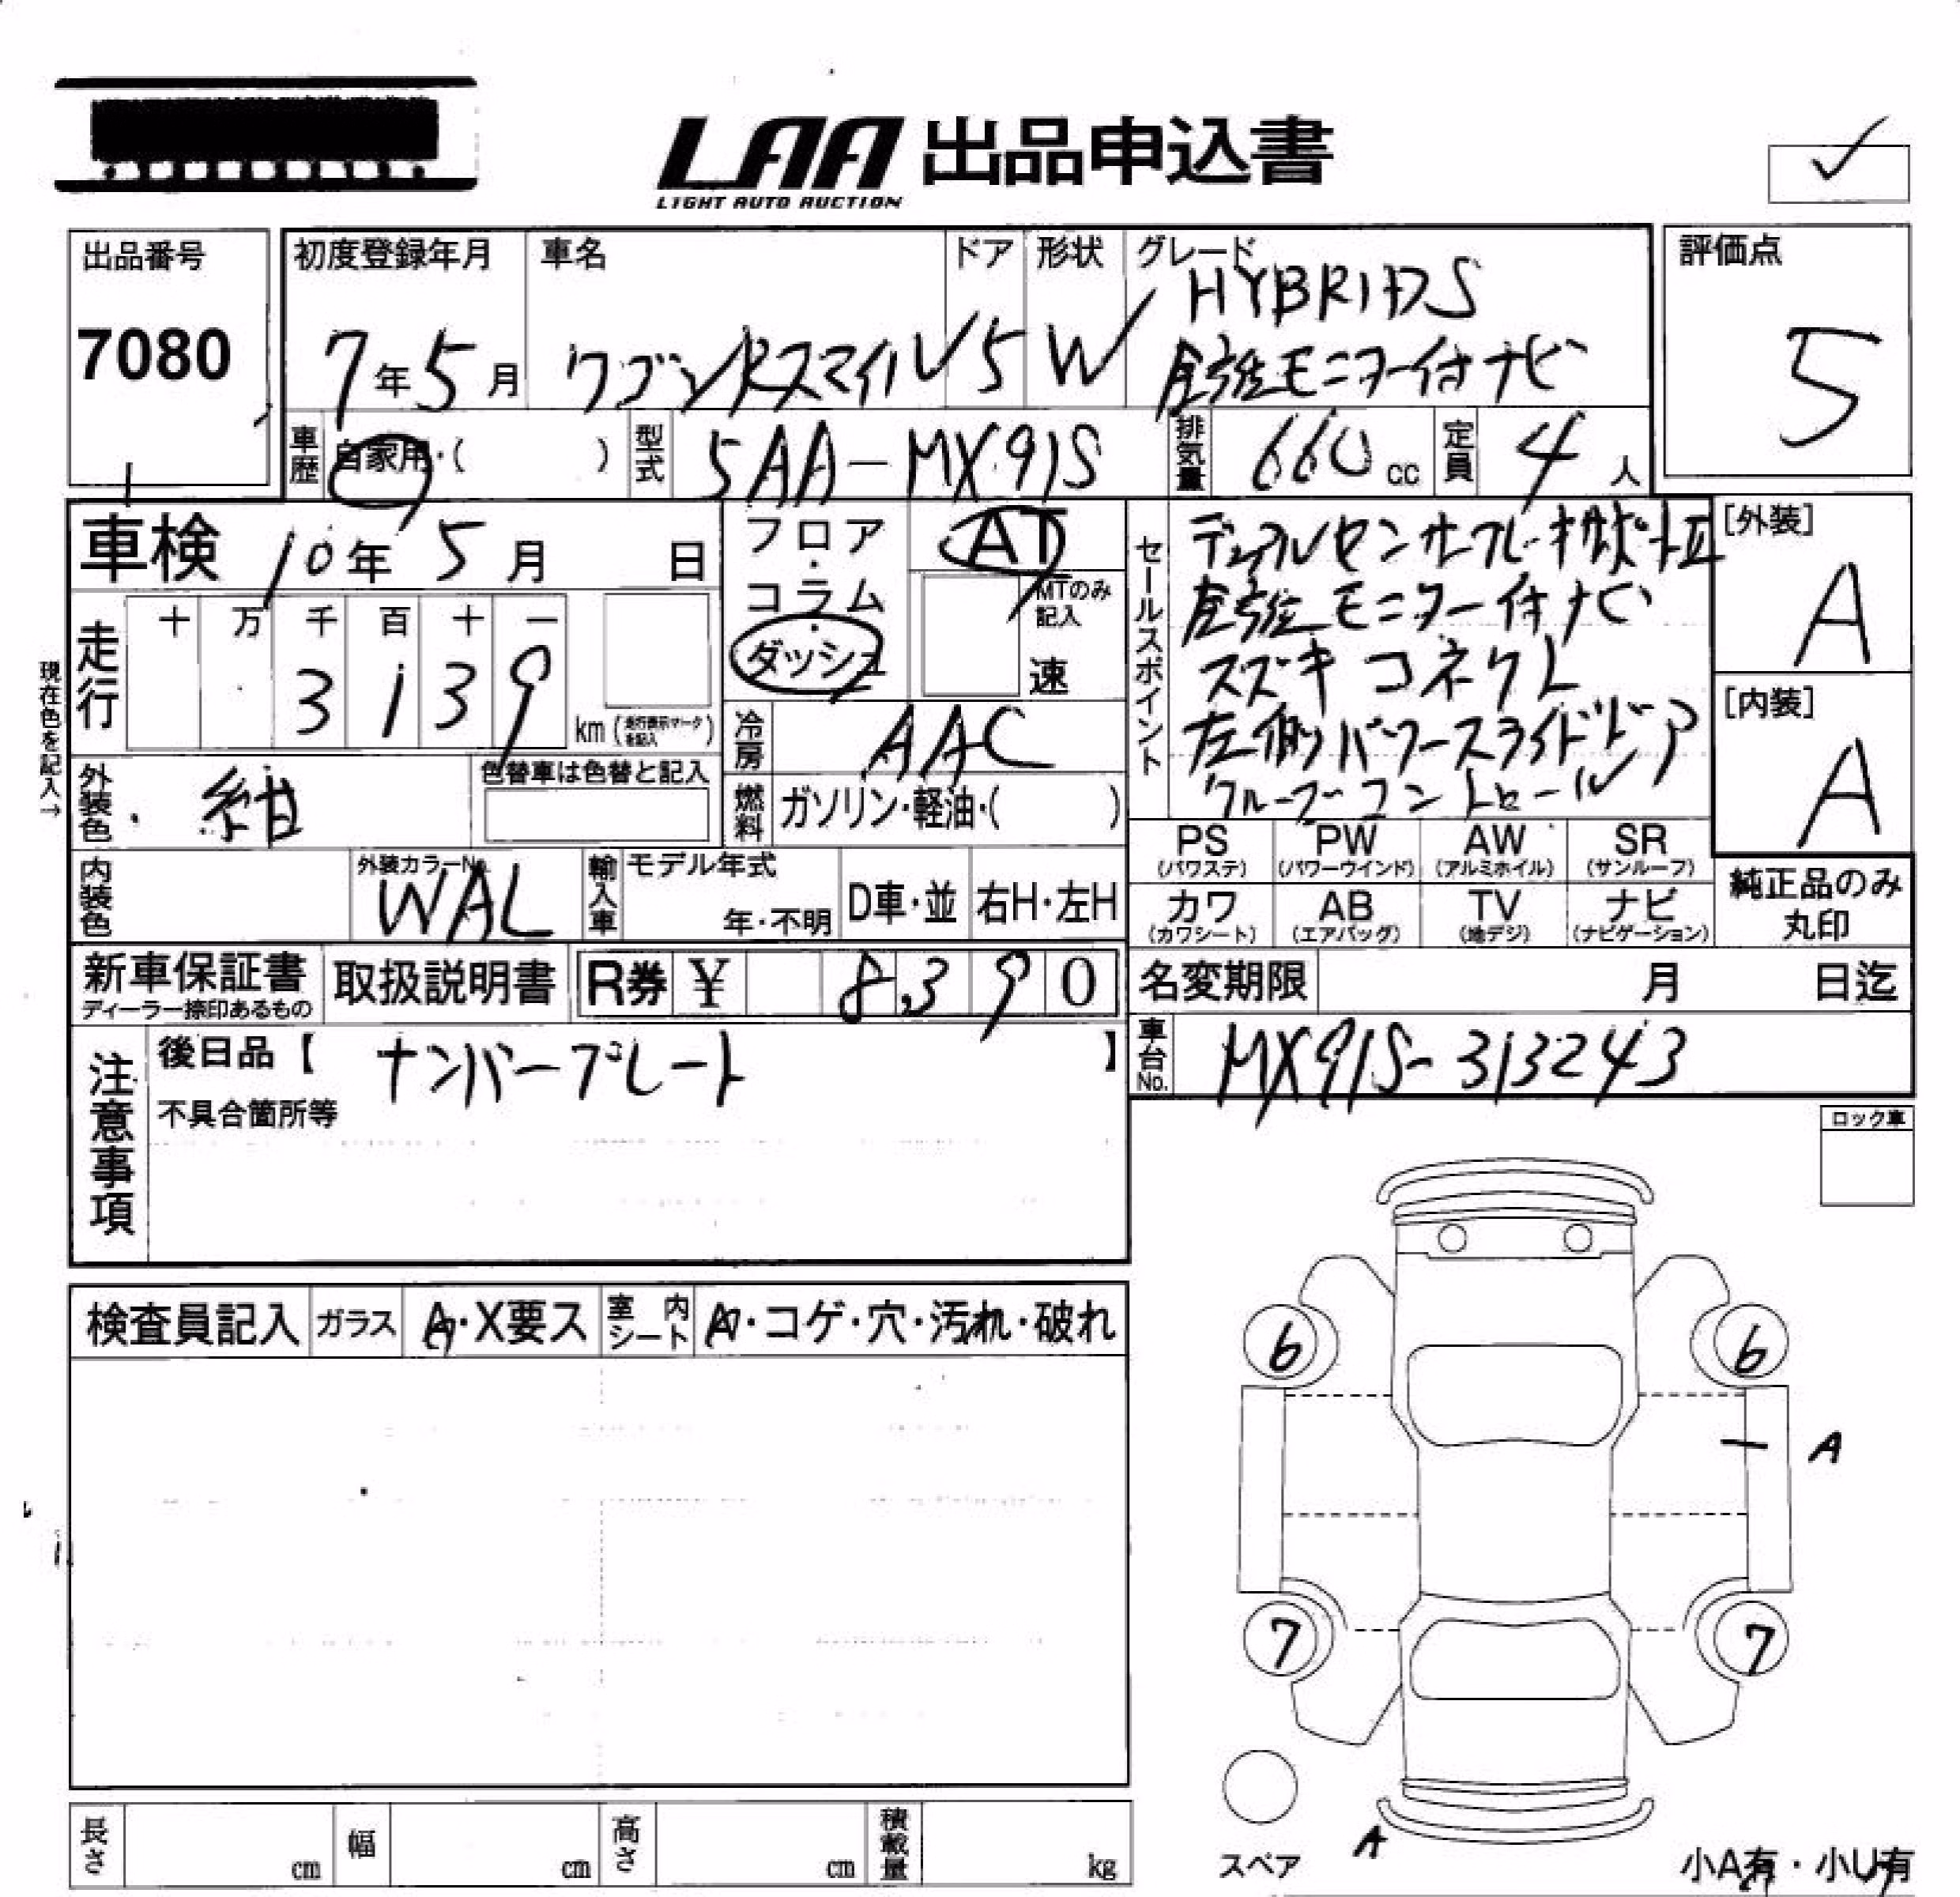 LAA 出品申込書
LIGHT AUTO AUCTION
出品番号
7080
初度登録年月
7年5月
車名
ワゴンRスマイル
ドア
5
形状
W
グレード
HYBRID S
全方位モニター付ナビ
評価点
5
車歴
自家用・( )
型式
5AA-MX91S
排気量
660cc
定員
4人
車検
10年5月 日
フロア・コラム・ダッシュ
AT
MTのみ記入
速
セールスポイント
デュアルセンサーブレーキサポートII
全方位モニター付ナビ
スズキコネクト
左側パワースライドドア
クルーズコントロール
[外装]
A
[内装]
A
現在色を記入→
走行
十 万 千 百 十 一
3 1 3 9
km (走行表示マークを記入)
冷房
AAC
外装色
紺
色替車は色替と記入
燃料
ガソリン・軽油・( )
PS (パワステ)
PW (パワーウインド)
AW (アルミホイル)
SR (サンルーフ)
カワ (カワシート)
AB (エアバッグ)
TV (地デジ)
ナビ (ナビゲーション)
純正品のみ丸印
内装色
外装カラーNo.
WAL
輸入車
モデル年式
年・不明
D車・並
右H・左H
新車保証書
ディーラー捺印あるもの
取扱説明書
R券 ¥ 8,390
名変期限 月 日迄
車台No.
MX91S-313243
注意事項
後日品【 ナンバープレート 】
不具合箇所等
ロック車
検査員記入
ガラス
A・X要ス
室内シート
・コゲ・穴・汚れ・破れ
6
6
A
7
7
A
スペア
小A有・小U有
長さ cm
幅 cm
高さ cm
積載量 kg